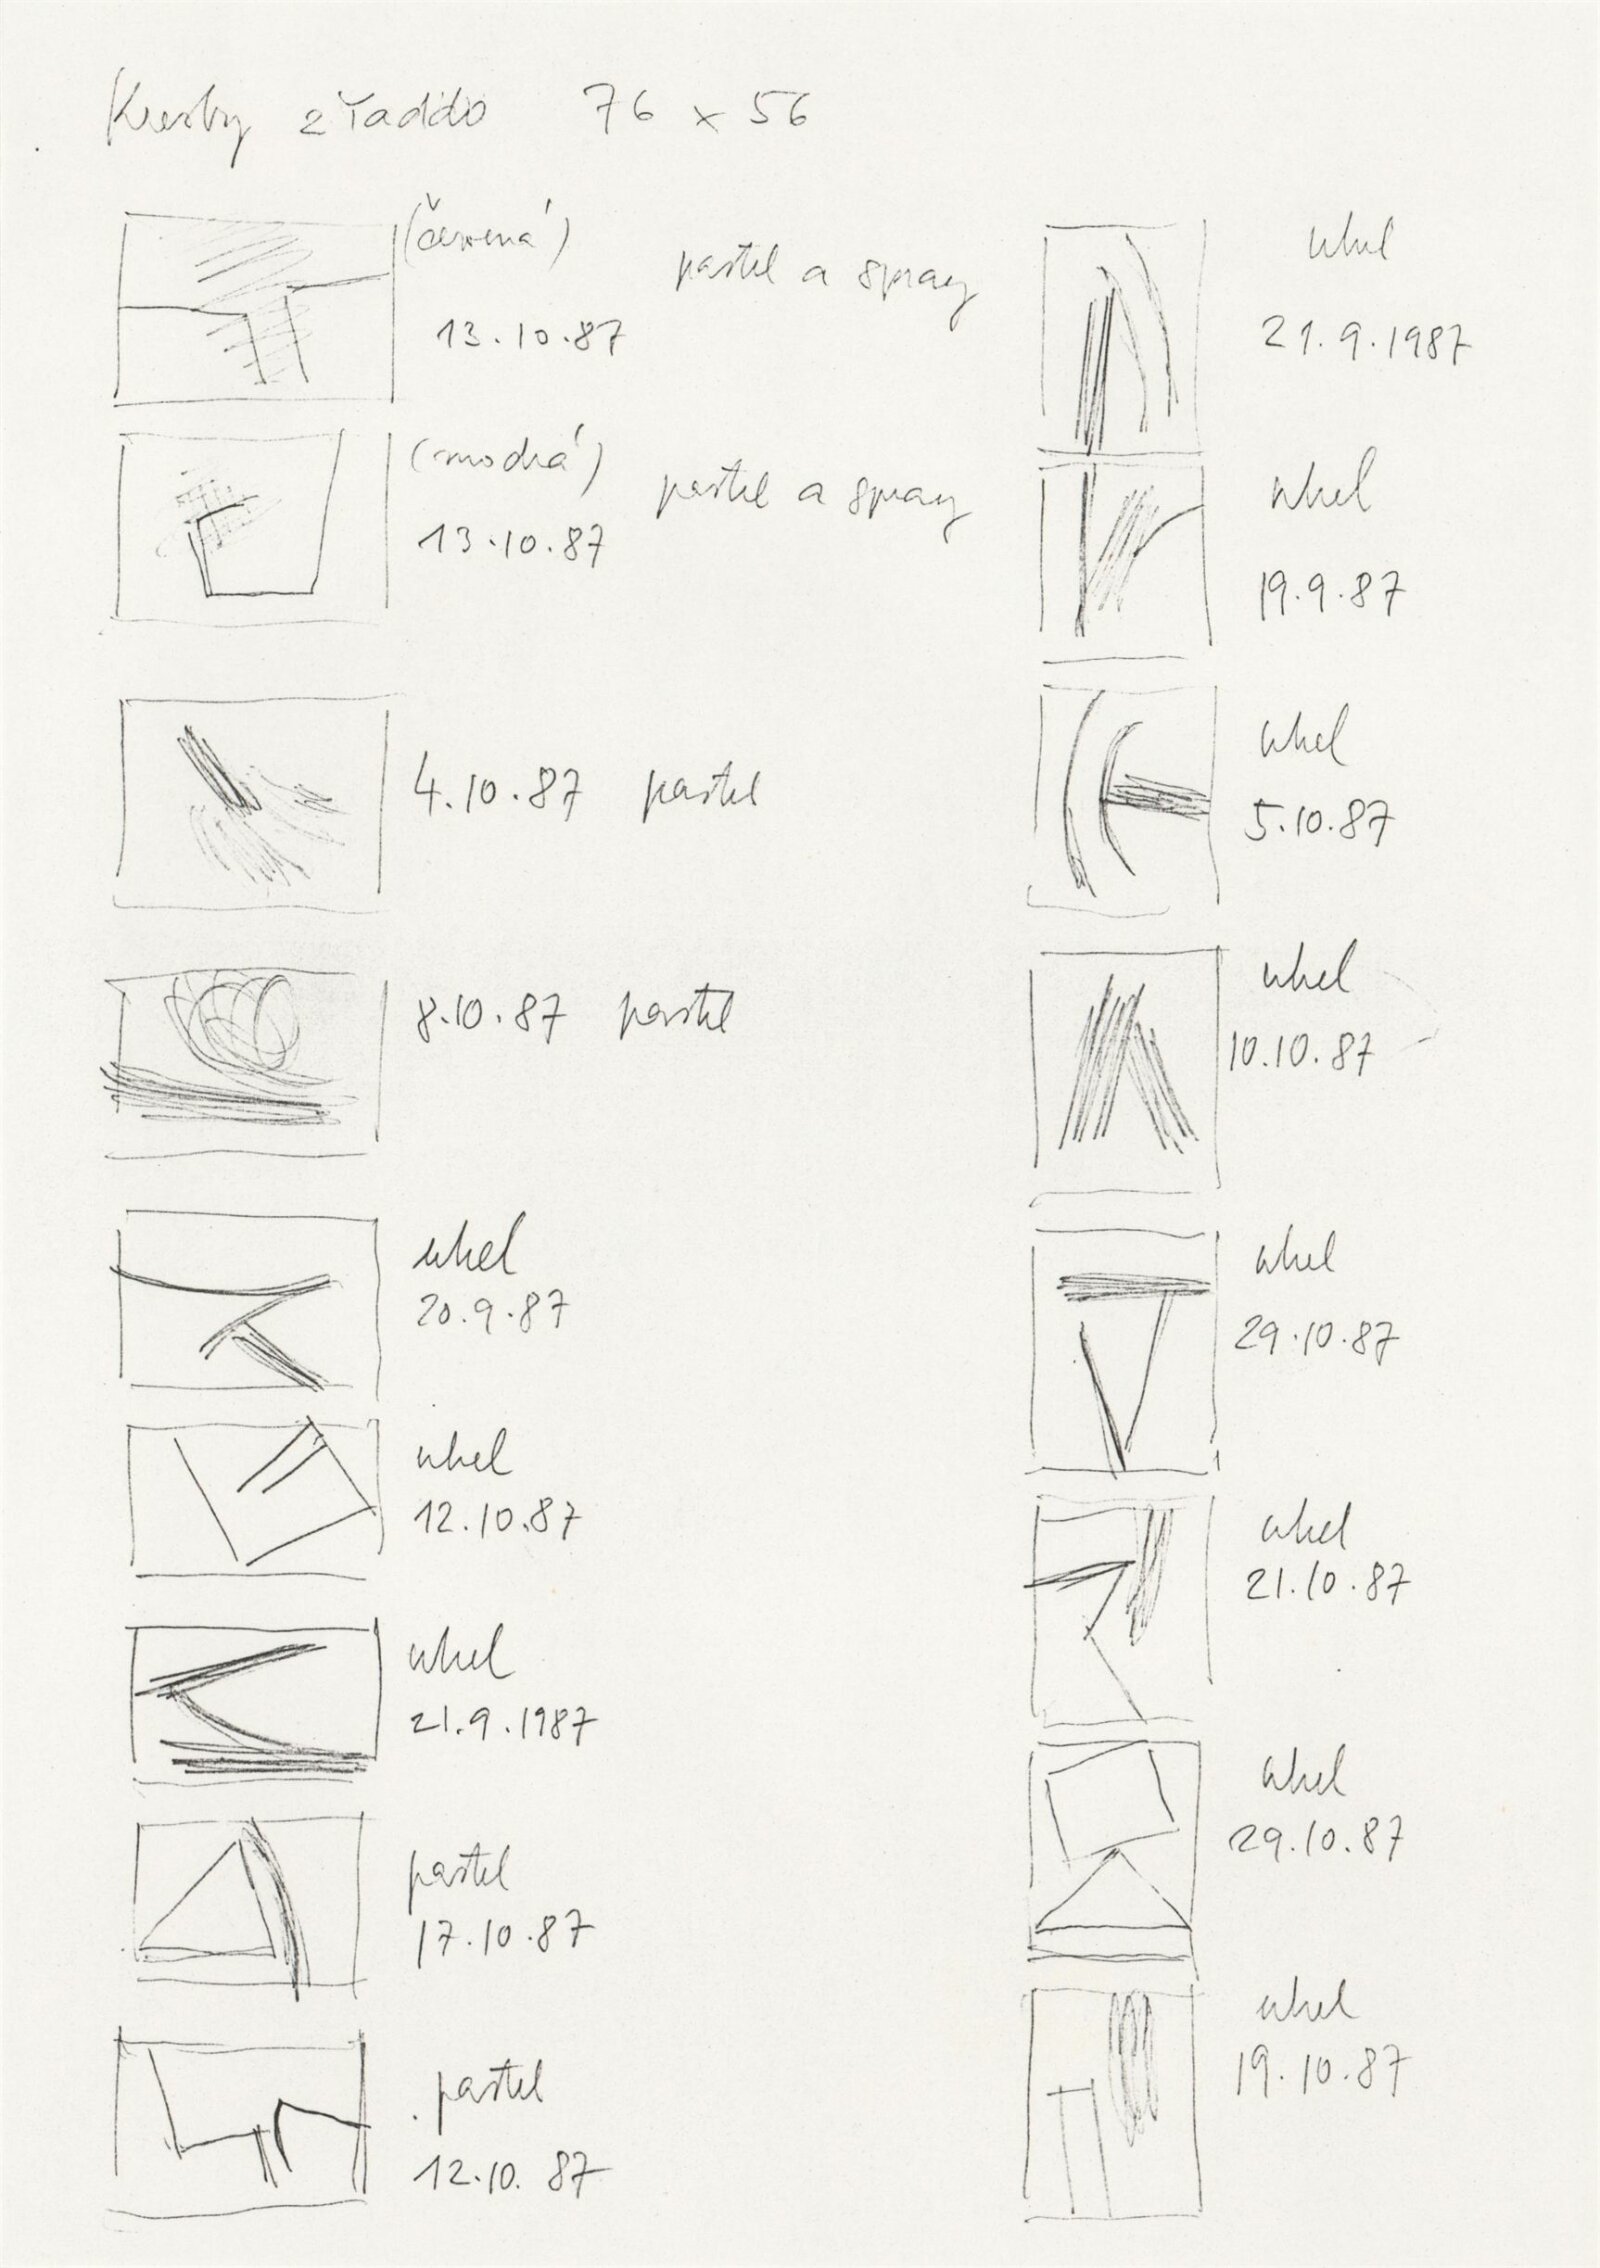 Kresby z Yaddo 76 x 56
(červená)
13.10.87
pastel a spray
(modrá)
13.10.87
pastel a spray
4.10.87 pastel
8.10.87 pastel
uhel
20.9.87
uhel
12.10.87
uhel
21.9.1987
pastel
17.10.87
pastel
12.10.87
uhel
21.9.1987
uhel
19.9.87
uhel
5.10.87
uhel
10.10.87
uhel
29.10.87
uhel
21.10.87
uhel
29.10.87
uhel
19.10.87